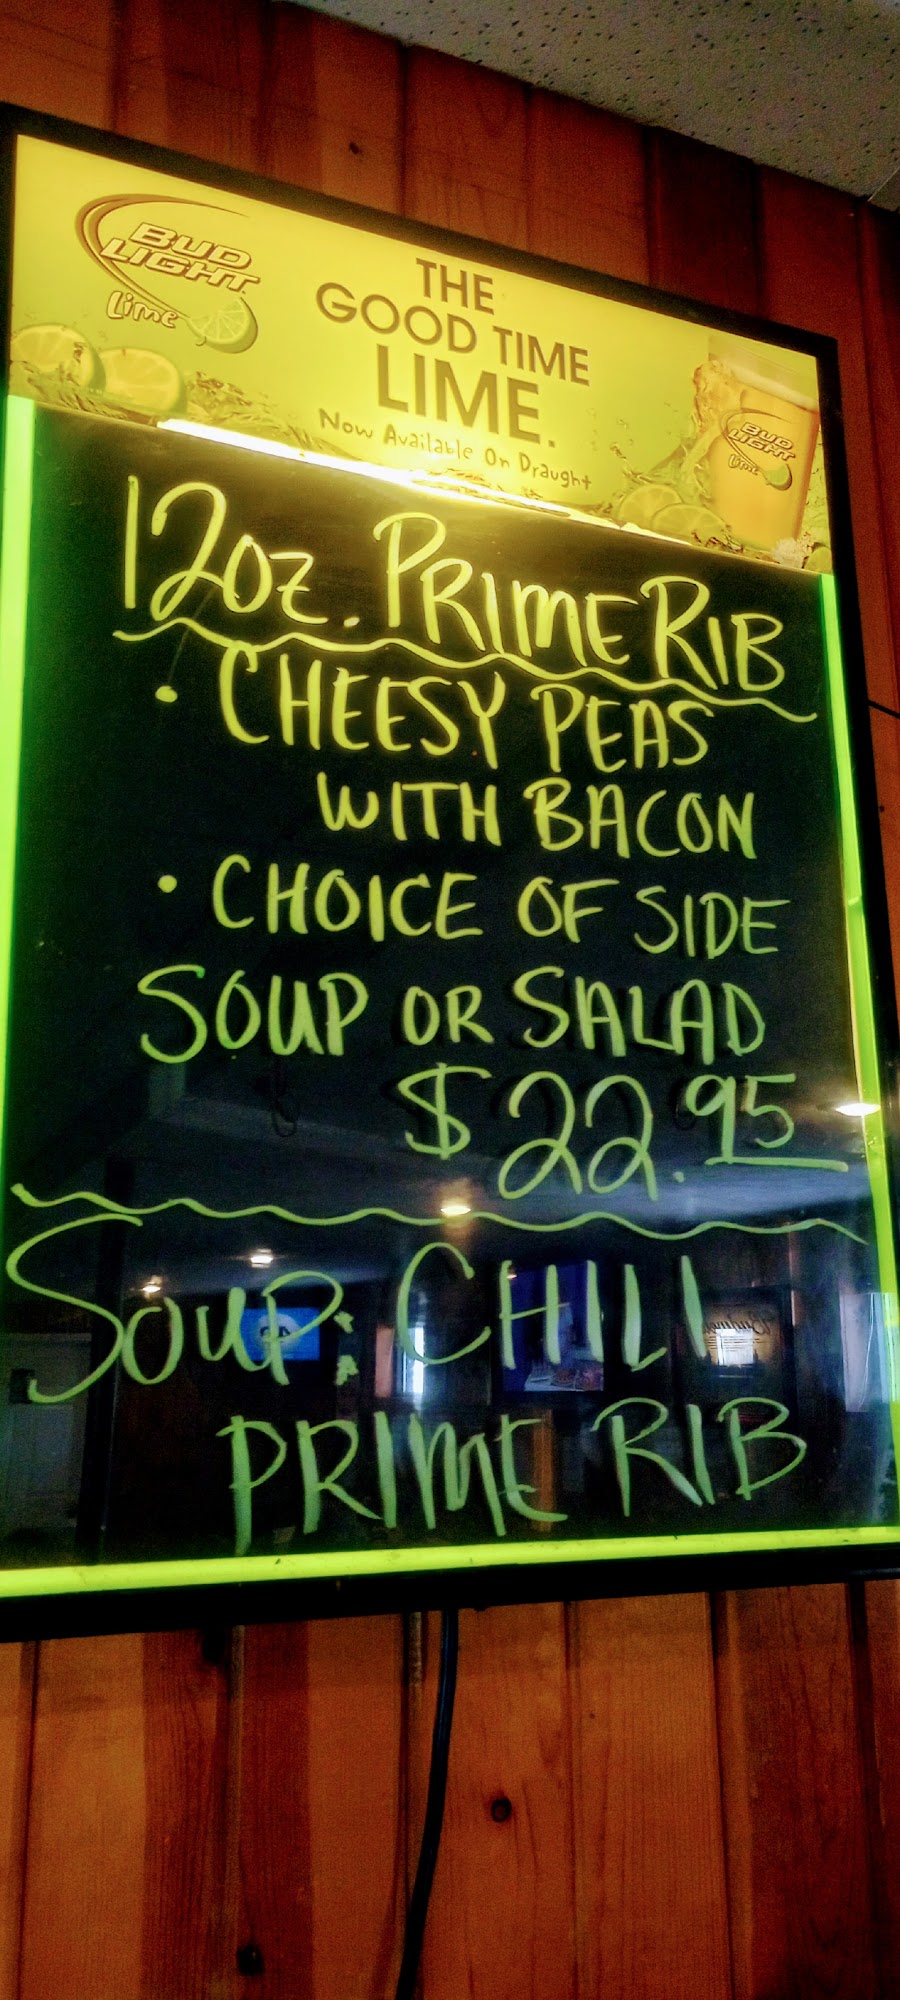 BUD
LIGHT
Lime
THE
GOOD TIME
LIME.
Now Available On Draught
BUD
LIGHT
Lime
12oz. PRIME RIB
• CHEESY PEAS
WITH BACON
• CHOICE OF SIDE
SOUP OR SALAD
$22.95
SOUP: CHILI
PRIME RIB